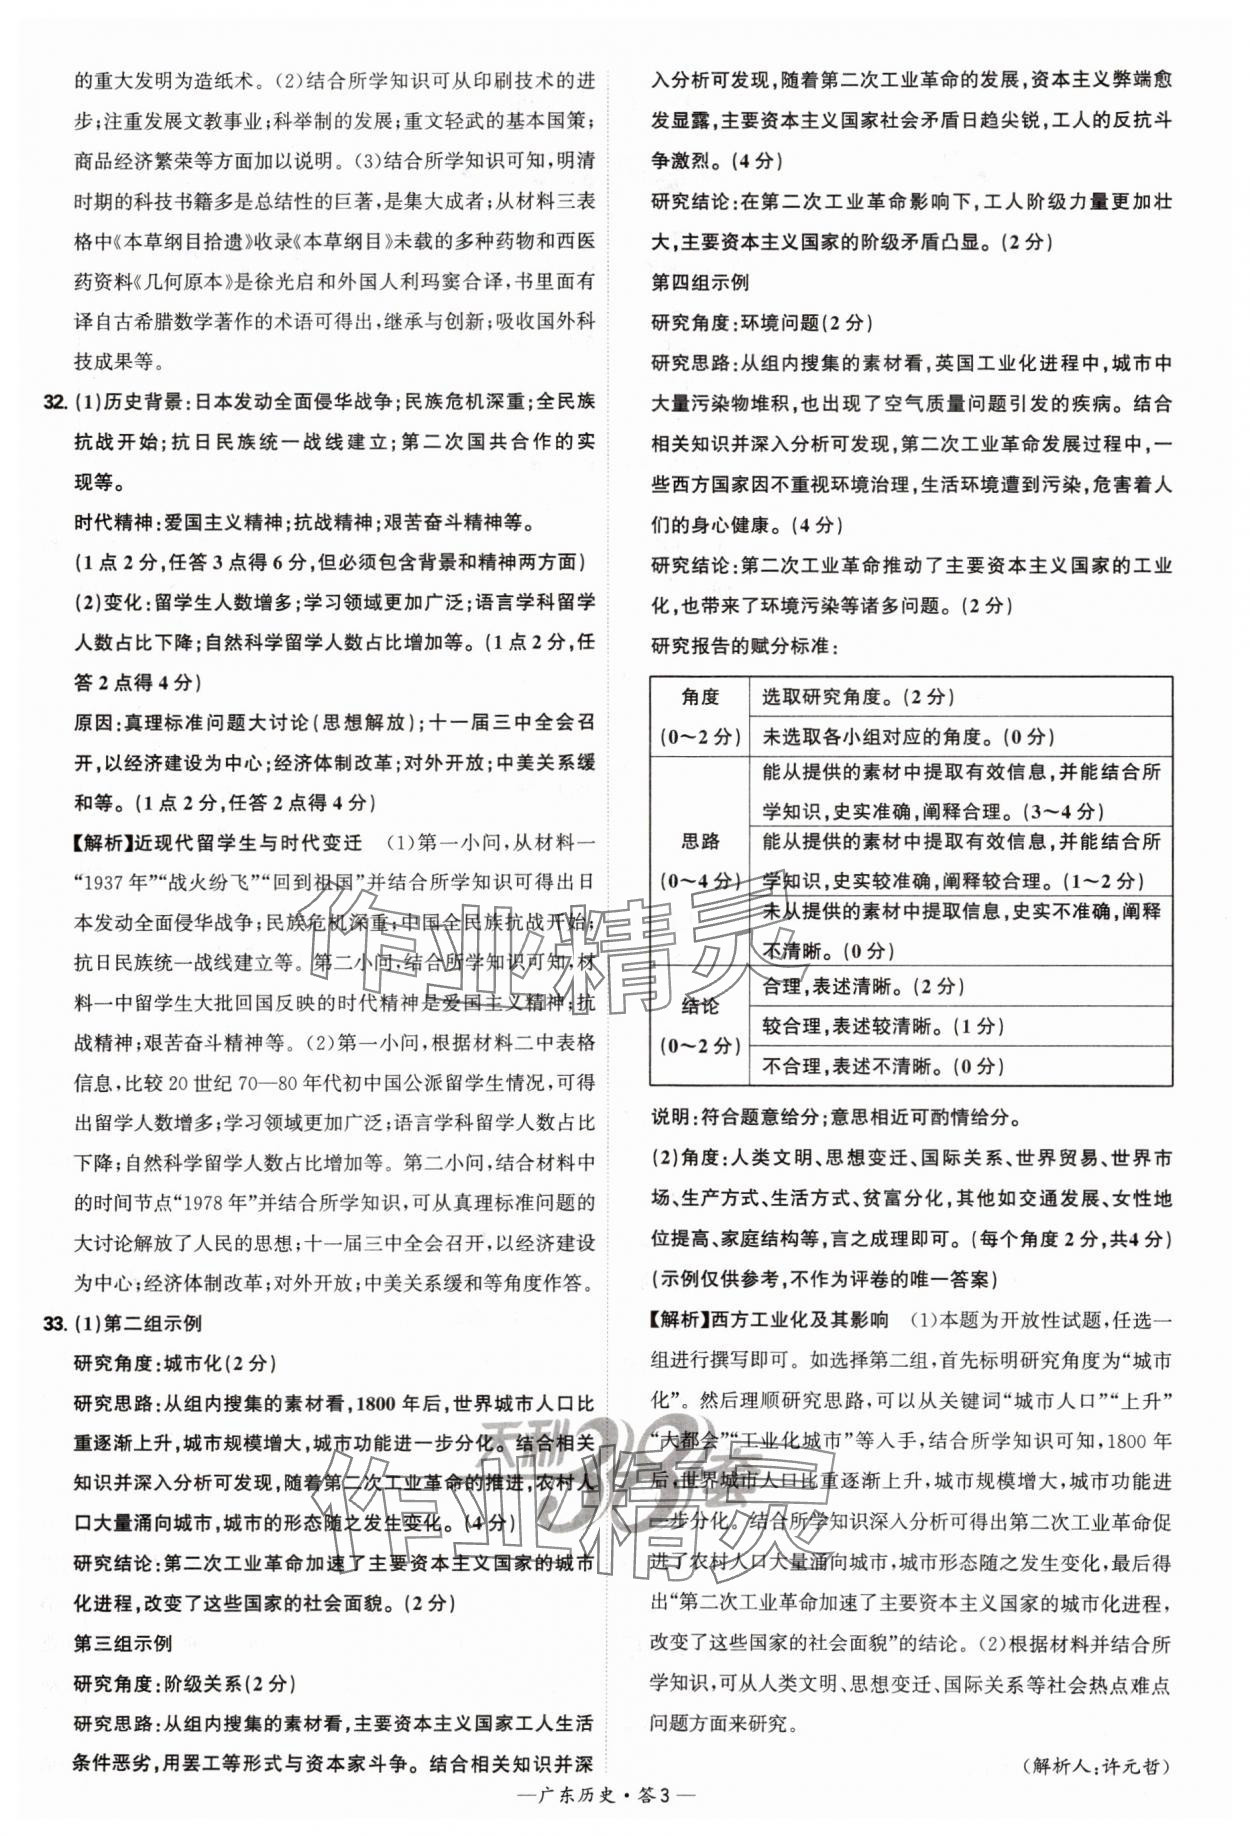 的重大发明为造纸术。(2)结合所学知识可从印刷技术的进
步;注重发展文教事业;科举制的发展;重文轻武的基本国策;
商品经济繁荣等方面加以说明。(3)结合所学知识可知,明清
时期的科技书籍多是总结性的巨著,是集大成者;从材料三表
格中《本草纲目拾遗》收录《本草纲目》未载的多种药物和西医
药资料《几何原本》是徐光启和外国人利玛窦合译,书里面有
译自古希腊数学著作的术语可得出,继承与创新;吸收国外科
技成果等。
32. (1)历史背景:日本发动全面侵华战争;民族危机深重;全民族
抗战开始;抗日民族统一战线建立;第二次国共合作的实
现等。
时代精神:爱国主义精神;抗战精神;艰苦奋斗精神等。
(1点2分,任答3点得6分,但必须包含背景和精神两方面)
(2)变化:留学生人数增多;学习领域更加广泛;语言学科留学
人数占比下降;自然科学留学人数占比增加等。(1点2分,任
答2点得4分)
原因:真理标准问题大讨论(思想解放);十一届三中全会召
开,以经济建设为中心;经济体制改革;对外开放;中美关系缓
和等。(1点2分,任答2点得4分)
【解析】近现代留学生与时代变迁 (1)第一小问,从材料一
“1937年”“战火纷飞”“回到祖国”并结合所学知识可得出日
本发动全面侵华战争;民族危机深重;中国全民族抗战开始;
抗日民族统一战线建立等。第二小问,结合所学知识可知,材
料一中留学生大批回国反映的时代精神是爱国主义精神;抗
战精神;艰苦奋斗精神等。(2)第一小问,根据材料二中表格
信息,比较20世纪70—80年代初中国公派留学生情况,可得
出留学人数增多;学习领域更加广泛;语言学科留学人数占比
下降;自然科学留学人数占比增加等。第二小问,结合材料中
的时间节点“1978年”并结合所学知识,可从真理标准问题的
大讨论解放了人民的思想;十一届三中全会召开,以经济建设
为中心;经济体制改革;对外开放;中美关系缓和等角度作答。
33. (1)第二组示例
研究角度:城市化(2分)
研究思路:从组内搜集的素材看,1800年后,世界城市人口比
重逐渐上升,城市规模增大,城市功能进一步分化。结合相关
知识并深入分析可发现,随着第二次工业革命的推进,农村人
口大量涌向城市,城市的形态随之发生变化。(4分)
研究结论:第二次工业革命加速了主要资本主义国家的城市
化进程,改变了这些国家的社会面貌。(2分)
第三组示例
研究角度:阶级关系(2分)
研究思路:从组内搜集的素材看,主要资本主义国家工人生活
条件恶劣,用罢工等形式与资本家斗争。结合相关知识并深
入分析可发现,随着第二次工业革命的发展,资本主义弊端愈
发显露,主要资本主义国家社会矛盾日趋尖锐,工人的反抗斗
争激烈。(4分)
研究结论:在第二次工业革命影响下,工人阶级力量更加壮
大,主要资本主义国家的阶级矛盾凸显。(2分)
第四组示例
研究角度:环境问题(2分)
研究思路:从组内搜集的素材看,英国工业化进程中,城市中
大量污染物堆积,也出现了空气质量问题引发的疾病。结合
相关知识并深入分析可发现,第二次工业革命发展过程中,一
些西方国家因不重视环境治理,生活环境遭到污染,危害着人
们的身心健康。(4分)
研究结论:第二次工业革命推动了主要资本主义国家的工业
化,也带来了环境污染等诸多问题。(2分)
研究报告的赋分标准:
角度
(0~2分)
选取研究角度。(2分)
未选取各小组对应的角度。(0分)
思路
(0~4分)
能从提供的素材中提取有效信息,并能结合所
学知识,史实准确,阐释合理。(3~4分)
能从提供的素材中提取有效信息,并能结合所
学知识,史实较准确,阐释较合理。(1~2分)
未从提供的素材中提取信息,史实不准确,阐释
不清晰。(0分)
结论
(0~2分)
合理,表述清晰。(2分)
较合理,表述较清晰。(1分)
不合理,表述不清晰。(0分)
说明:符合题意给分;意思相近可酌情给分。
(2)角度:人类文明、思想变迁、国际关系、世界贸易、世界市
场、生产方式、生活方式、贫富分化,其他如交通发展、女性地
位提高、家庭结构等,言之成理即可。(每个角度2分,共4分)
(示例仅供参考,不作为评卷的唯一答案)
【解析】西方工业化及其影响 (1)本题为开放性试题,任选一
组进行撰写即可。如选择第二组,首先标明研究角度为“城市
化”。然后理顺研究思路,可以从关键词“城市人口”“上升”
“大都会”“工业化城市”等入手,结合所学知识可知,1800年
后,世界城市人口比重逐渐上升,城市规模增大,城市功能进
一步分化。结合所学知识深入分析可得出第二次工业革命促
进了农村人口大量涌向城市,城市形态随之发生变化,最后得
出“第二次工业革命加速了主要资本主义国家的城市化进程,
改变了这些国家的社会面貌”的结论。(2)根据材料并结合所
学知识,可从人类文明、思想变迁、国际关系等社会热点难点
问题方面来研究。
(解析人:许元哲)
—广东历史·答3—
作业精灵
天利38套
作业精灵